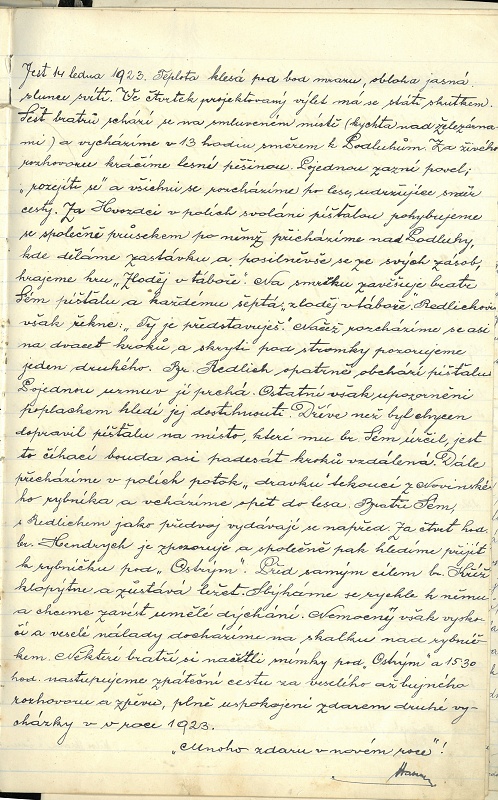 Jest 14 ledna 1923. Teplota klesá pod bod mrazu, obloha jasná
slunce svítí. Ve čtvrtek projektovaný výlet má se státi skutkem.
Šest bratrů schází se na smluveném místě (kychta nad železárna-
mi) a vycházíme v 13 hodin směrem k Podluhům. Za živého
rozhovoru kráčíme lesní pěšinou. Pojednou zazní povel;
„rozejíti se" a všichni se rozcházíme po lese, udržujíce směr
cesty. Za Hvozdcí v polích svoláni píšťalou pohybujeme
se společně průsekem po němž přicházíme nad Podluhy,
kde děláme zastávku a posilněvše se ze svých zásob,
hrajeme hru „Zloděj v táboře". Na smrčku zavěšuje bratr
Sém píšťalu a každému šeptá; „zloděj v táboře". Redlichovi
však řekne: „Ty je představuješ". Načež rozcházíme se asi
na dvacet kroků a skryti pod stromky pozorujeme
jeden druhého. Br. Redlich opatrně obchází píšťalu
Pojednou urmuv jí prchá. Ostatní však upozorněni
poplachem hledí jej dostihnouti. Dříve než byl chycen
dopravil píšťalu na místo, které mu br. Sém určil, jest
to číhací bouda asi padesát kroků vzdálená. Dále
přecházíme v polích potok „dravku tekoucí z Novinské-
ho rybníka a vcházíme opět do lesa. Bratři Sém,
s Redlichem jako předvoj vydávají se napřed. Za čtvrt hod.
br. Hendrych je zpozoruje a společně pak hledíme přijít
k rybníčku pod „Ostrým". Před samým cílem br. Kříž
klopýtne a zůstává ležet. Sbýháme se rychle k němu
a chceme zavést umělé dýchání. Nemocný však vysko-
čí a veselé nálady docházíme na skalku nad rybníč-
kem. Někteří bratři si načetli mimky pod „Ostrým" a 15 30
hod. nastupujeme zpáteční cestu za veselého až bujného
rozhovoru a zpěvu, plně uspokojeni zdarem druhé vy-
cházky v v roce 1923.
„Mnoho zdaru v novém roce"!